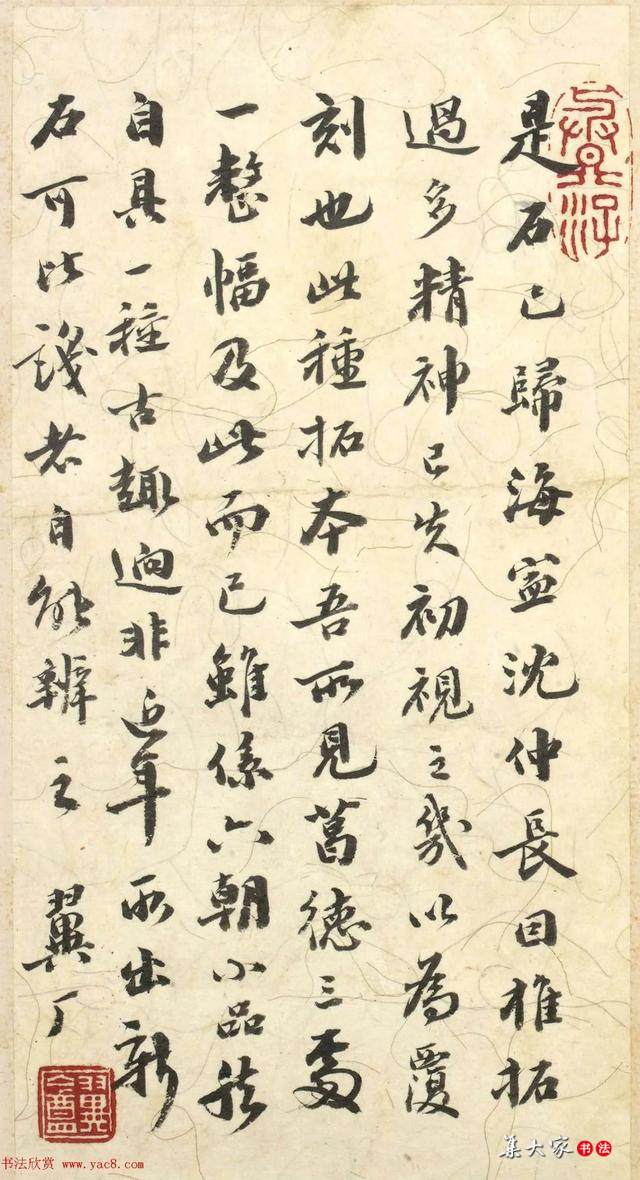 是石已歸海寧沈仲長因椎拓
過多精神已失初視之幾以為覆
刻也此種拓本吾所見德三處
一整幅及此而已雖係六朝小品然
自具一種古趣迥非近年所出新
石可比識者自能辨之 翼厂
翼盦
集大家 书法
书法欣赏 www.yac8.com